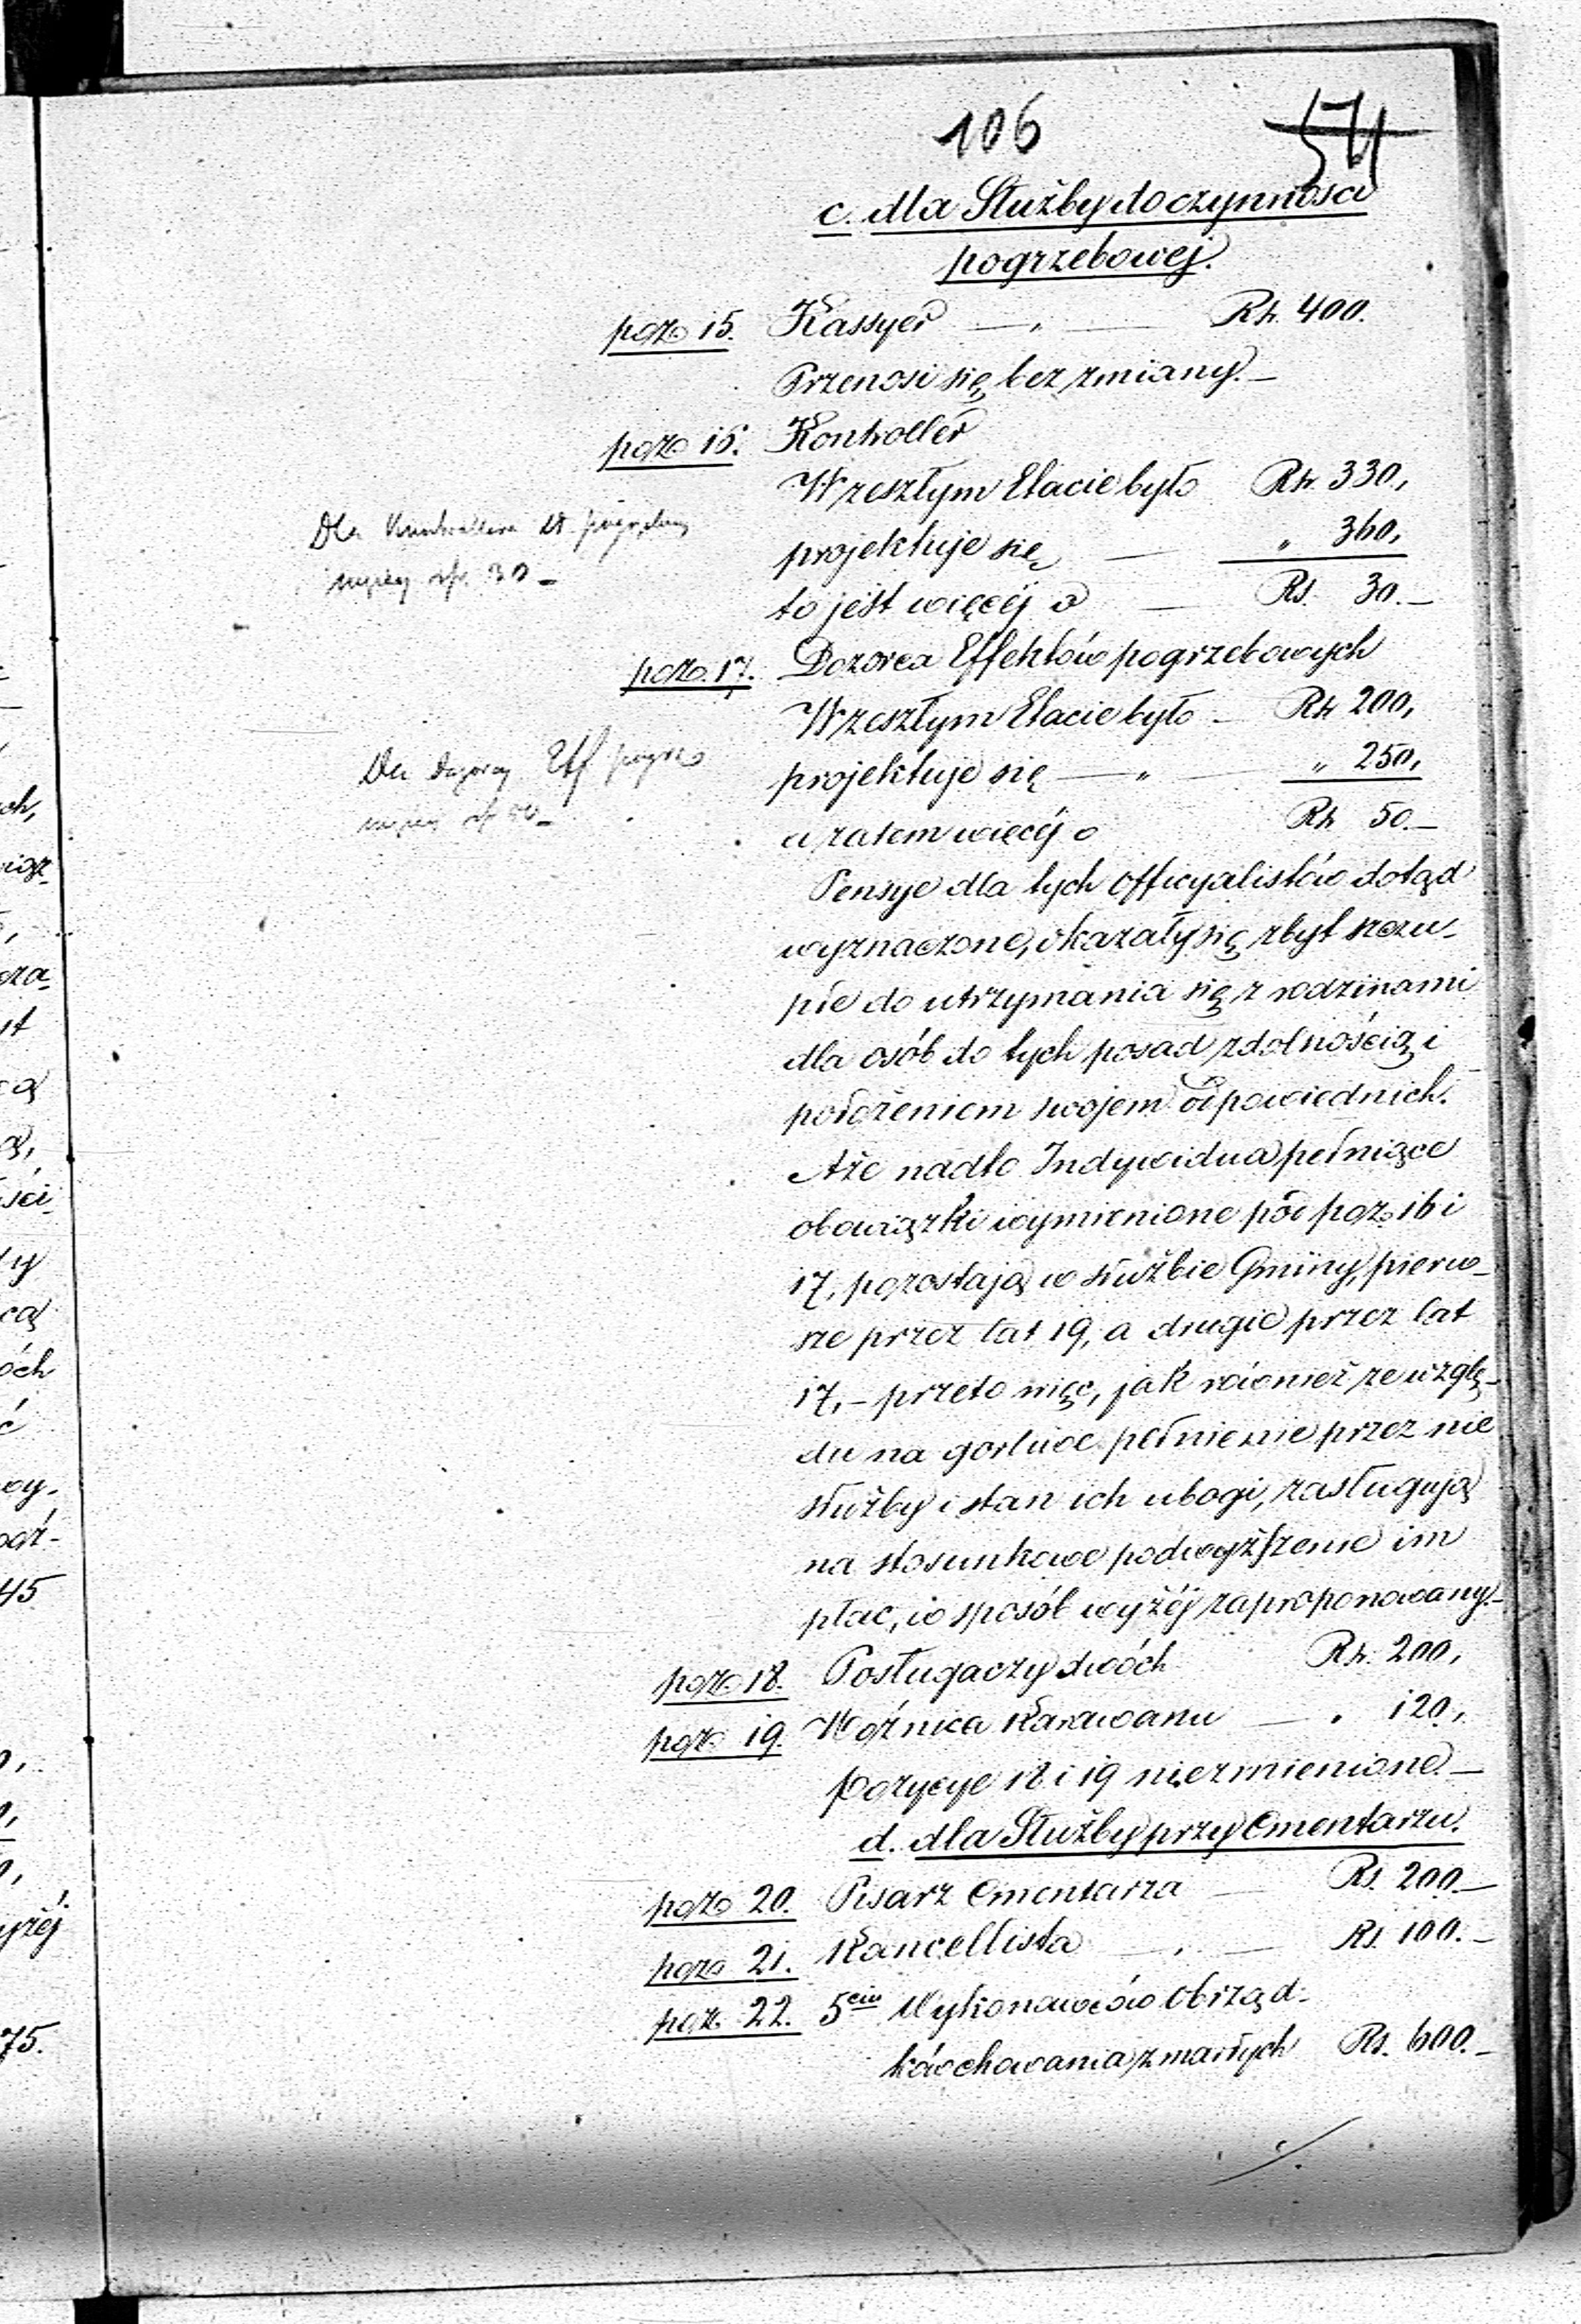 106
54
c. dla Służby do czynności
pogrzebowej.
poz. 15. Kassyer — „ — Rs. 400.
Przenosi się bez zmiany. —
poz. 16. Kontroller
W zeszłym Etacie było Rs. 330,
projektuje się — „ 360,
to jest więcéj o — Rs. 30. —
Dla Kontrollera
więcej rs. 30 —
poz. 17. Dozorca Effektów pogrzebowych
W zeszłym Etacie było — Rs. 200,
projektuje się — „ — „ 250,
a zatem więcéj o Rs. 50. —
Dla Dozorcy Eff pogrzeb
więcej rs. 50 —
Pensye dla tych Officyalistów dotąd
wyznaczone, okazały się zbyt szczu-
płe do utrzymania się z rodzinami
dla osób do tych posad zdolnością i
położeniem swojem odpowiednich.
A że nadto Indywidua pełniące
obowiązki wymienione pod poz. 16 i
17, pozostają w służbie Gminy, pierw-
sze przez lat 19, a drugie przez lat
17, – przeto więc, jak również ze wzglę-
du na gorliwe pełnienie przez nie
służby i stan ich ubogi, zasługują
na stosunkowe podwyższenie im
płac, w sposób wyżéj zaproponowany. —
poz. 18. Posługaczy dwóch Rs. 200,
poz. 19. Woźnica Karawanu — „ 120,
Pozycye 18 i 19 niezmienione. —
d. dla Służby przy Cmentarzu.
poz. 20. Pisarz Cmentarza — Rs. 200. —
poz. 21. Kancellista — „ — Rs. 100. —
poz. 22. 5ciu Wykonawców obrząd-
ków chowania zmarłych Rs. 600. —
./.